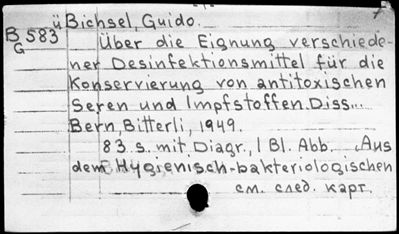 üBichsel, Guido.
B 583
G
Über die Eignung verschiede-
ner Desinfektionsmittel für die
Konservierung von antitoxischen
Seren und Impfstoffen. Diss...
Bern, Bitterli, 1949.
83. s. mit Diagr., 1 Bl. Abb. Aus
dem Hygienisch-bakteriologischen
см. след. карт.